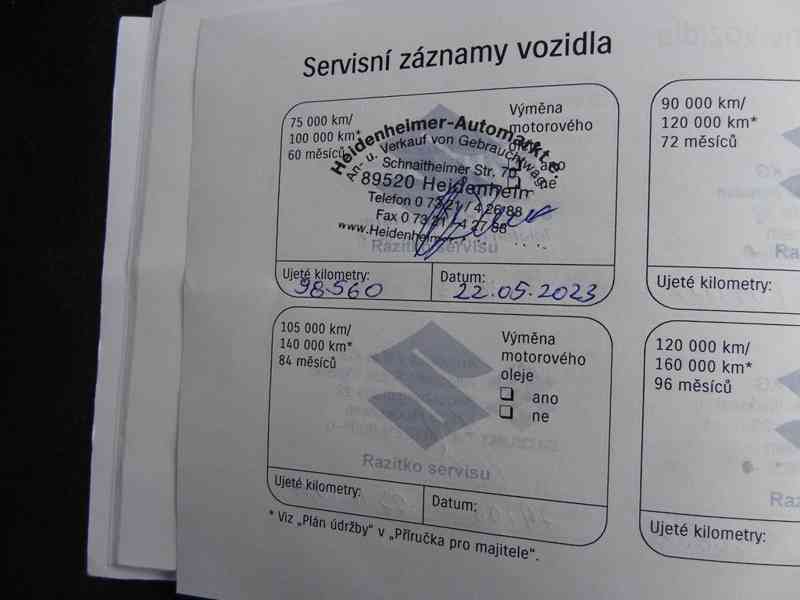 Servisní záznamy vozidla
75 000 km/
100 000 km*
60 měsíců
Výměna
motorového
ano
ne
Heidenheimer-Automarkt
An- u. Verkauf von Gebrauchtwag
Schnaitheimer Str. 70
89520 Heidenheim
Telefon 0 73 21 / 4 26 88
Fax 0 73 21 / 4 27 88
www.Heidenheimer
Razítko servisu
Ujeté kilometry:
98.560
Datum:
22.05.2023
90 000 km/
120 000 km*
72 měsíců
Ra
Ujeté kilometry:
105 000 km/
140 000 km*
84 měsíců
Výměna
motorového
oleje
ano
ne
Razítko servisu
Ujeté kilometry:
Datum:
120 000 km/
160 000 km*
96 měsíců
Raz
Ujeté kilometry:
* Viz „Plán údržby“ v „Příručka pro majitele“.